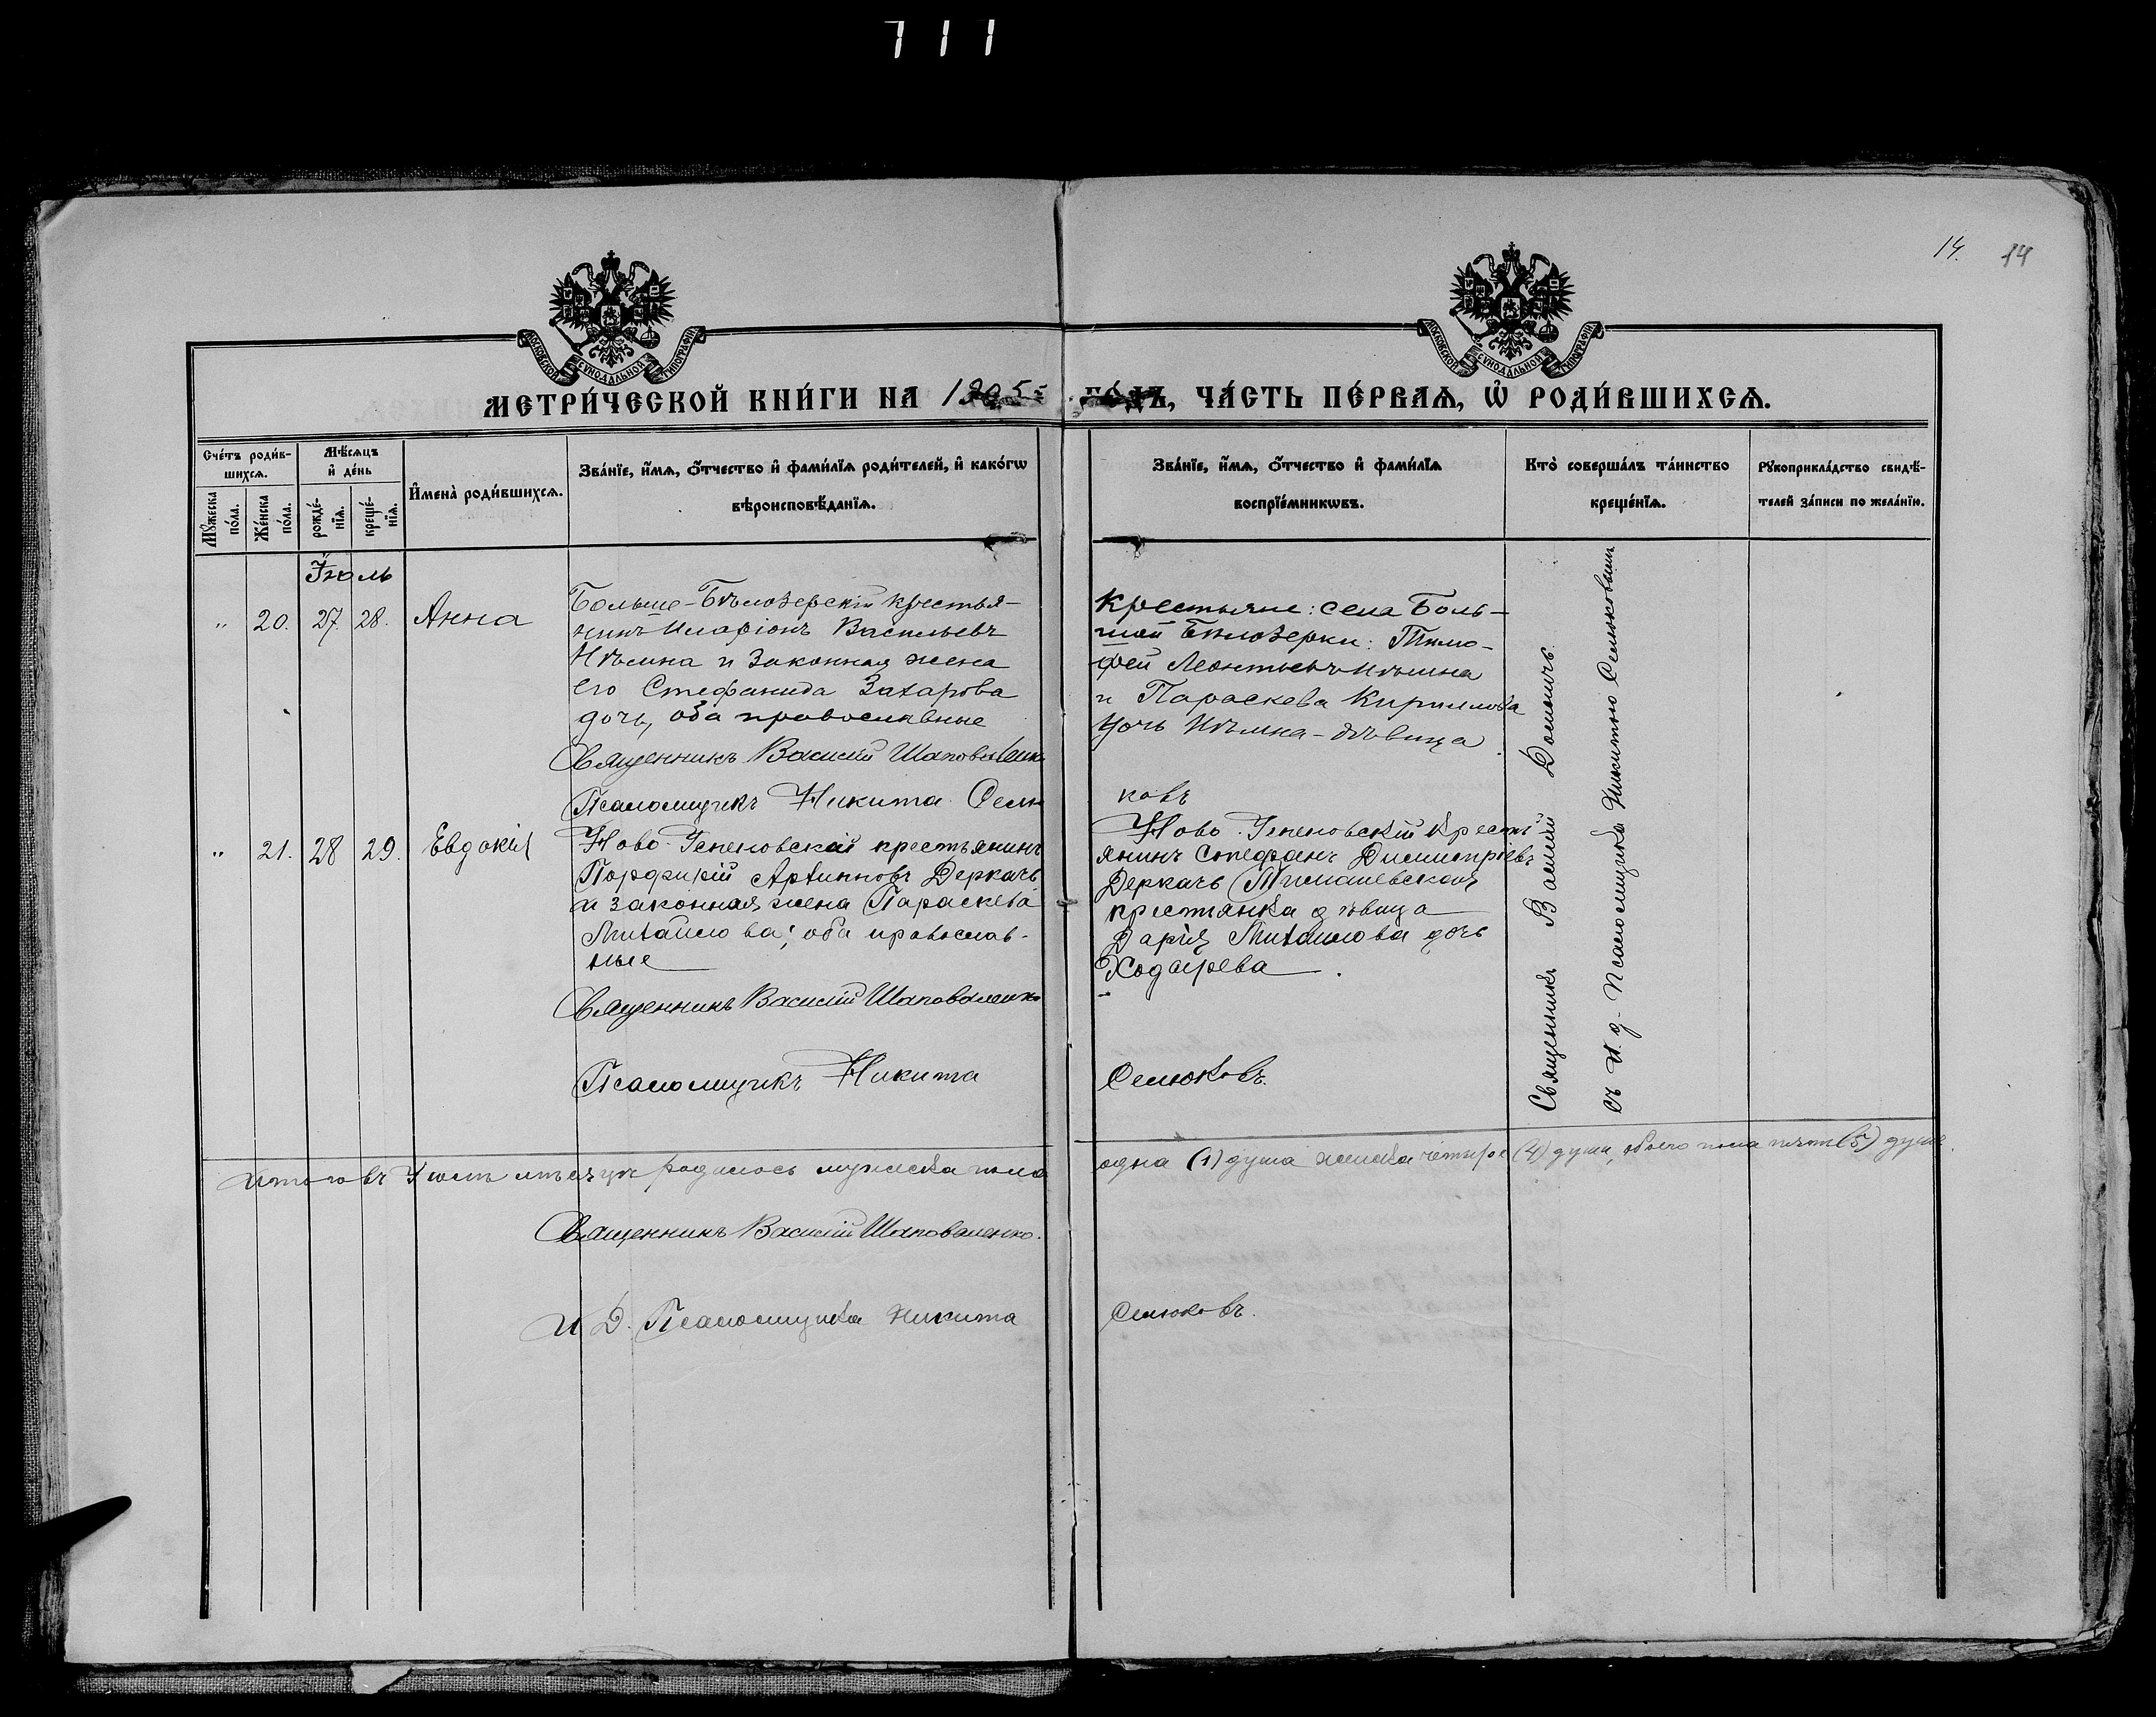 711
14. 14
МОСКОВСКОЙ СѴНОДАЛЬНОЙ ТИПОГРАФІИ
МОСКОВСКОЙ СѴНОДАЛЬНОЙ ТИПОГРАФІИ
МЕТРИ́ЧЕСКОЙ КНИ́ГИ НА 1905 го́дъ, ЧА́СТЬ ПЕ́РВАѦ, Ѡ҆ РОДИ́ВШИХСѦ.
Сче́тъ роди́в-
шихсѧ.
Мꙋ́жеска по́ла.
Же́нска по́ла.
Мѣ́сѧцъ
и҆ де́нь
рожде́-
нїѧ.
креще́-
нїѧ.
И҆мена̀ роди́вшихсѧ.
Зва́нїе, и҆́мѧ, ѻ҆́тчество и҆ фами́лїѧ роди́телей, и҆ како́гѡ
вѣроисповѣ́данїѧ.
Зва́нїе, и҆́мѧ, ѻ҆́тчество и҆ фами́лїѧ
воспрїе́мникѡвъ.
Кто̀ соверша́лъ та́инство
креще́нїѧ.
Рꙋкоприкла́дство свидѣ́-
телей за́писи по жела́нїю.
Іюль
" 20. 27. 28. Анна
Больше-Бѣлозерскій крестья-
нинъ Иларіонъ Васильевъ
Нѣмна и законная жена
его Стефанида Захарова
дочь, оба православные
Священникъ Василій Шаповаленко
Псаломщикъ Никита Селю
ковъ
Крестьяне: села Боль-
шой Бѣлозерки: Тимо-
фей Леонтьевъ
и Параскева Кириллова
дочь Нѣмна - дѣвица
" 21. 28 29. Евдокія
Ново-Успеновскій крестьянинъ
Порфирій Архиповъ Деркачъ
и законная жена Параскева
Михайлова; оба православ-
ные
Священникъ Василій Шаповаленко
Псаломщикъ Никита Селюковъ.
Ново-Успеновскій кресть-
янинъ Стефанъ Димитріевъ
Деркачъ Тимашевская
крестьянка дѣвица
Дарія Михайлова дочь
Ходырева
Священникъ Василій
съ И. д. Псаломщика Никитою Селюковымъ
Итого въ Іюлѣ мѣсяцѣ родилось мужеска пола одна (1) душа женска четыре (4) души, обоего пола пять (5) душъ
Священникъ Василій Шаповаленко.
И Д. Псаломщика Никита Селюковъ.